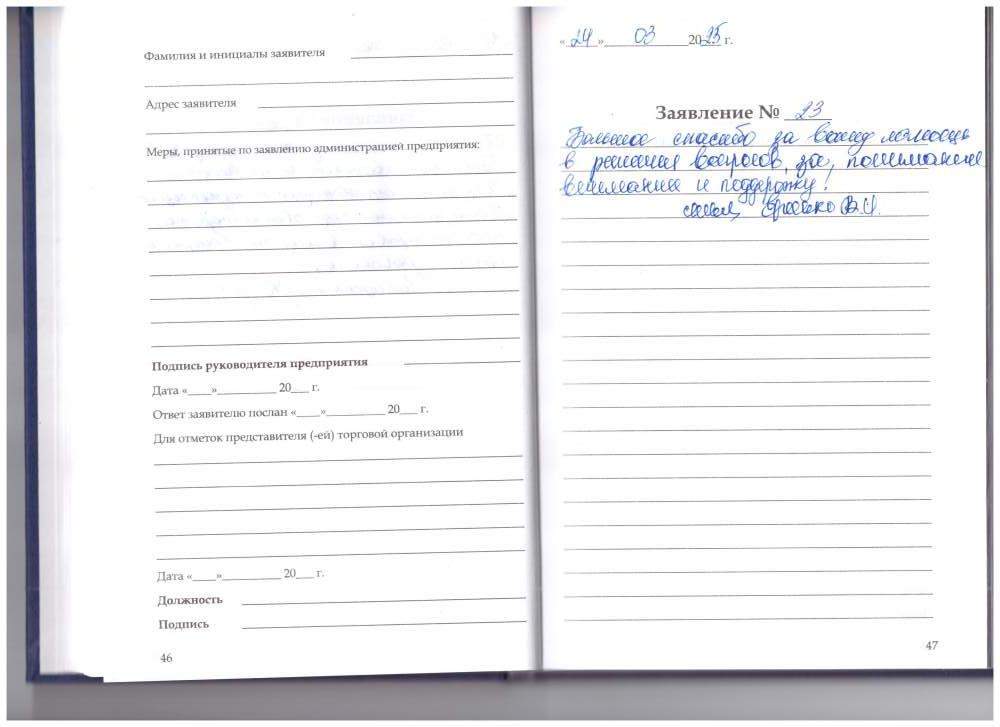 Фамилия и инициалы заявителя
Адрес заявителя
Меры, принятые по заявлению администрацией предприятия:
Подпись руководителя предприятия
Дата «____»__________ 20___ г.
Ответ заявителю послан «____»__________ 20___ г.
Для отметок представителя (-ей) торговой организации
Дата «____»__________ 20___ г.
Должность
Подпись
46
« 24 » 03 2025 г.
Заявление № 23
Большое спасибо за вашу помощь
в решении вопросов, за, понимание
внимание и поддержку!
В.И.
47